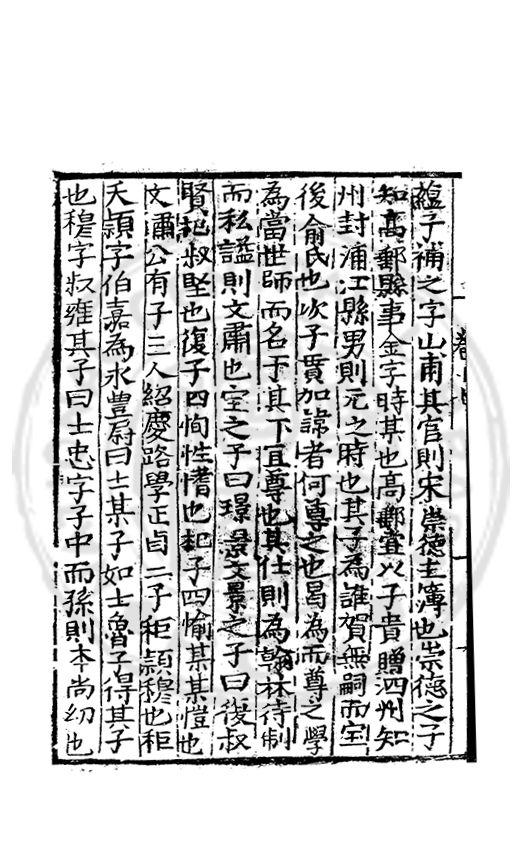 蘊子補之字山甫其官則宋崇德主簿也崇德之子
知高郵縣事金字時其也高郵宜以子貴贈泗州知
州封浦江縣男則元之時也其子為誰賀無嗣而寔
後俞氏也次子貫加諱者何尊之也曷為而尊之學
為當世師而名于其下宜尊也其仕則為翰林待制
而私謚則文肅也寔之子曰璟景文景之子曰復叔
賢杞叔堅也復子四恂性愭也杞子四愉某某愷也
文肅公有子三人紹慶路學正卣二子秬頴穆也秬
夭頴字伯嘉為永豊尉曰士某子如士魯子得其子
也穆字叔雍其子曰士忠字子中而孫則本尚幼也